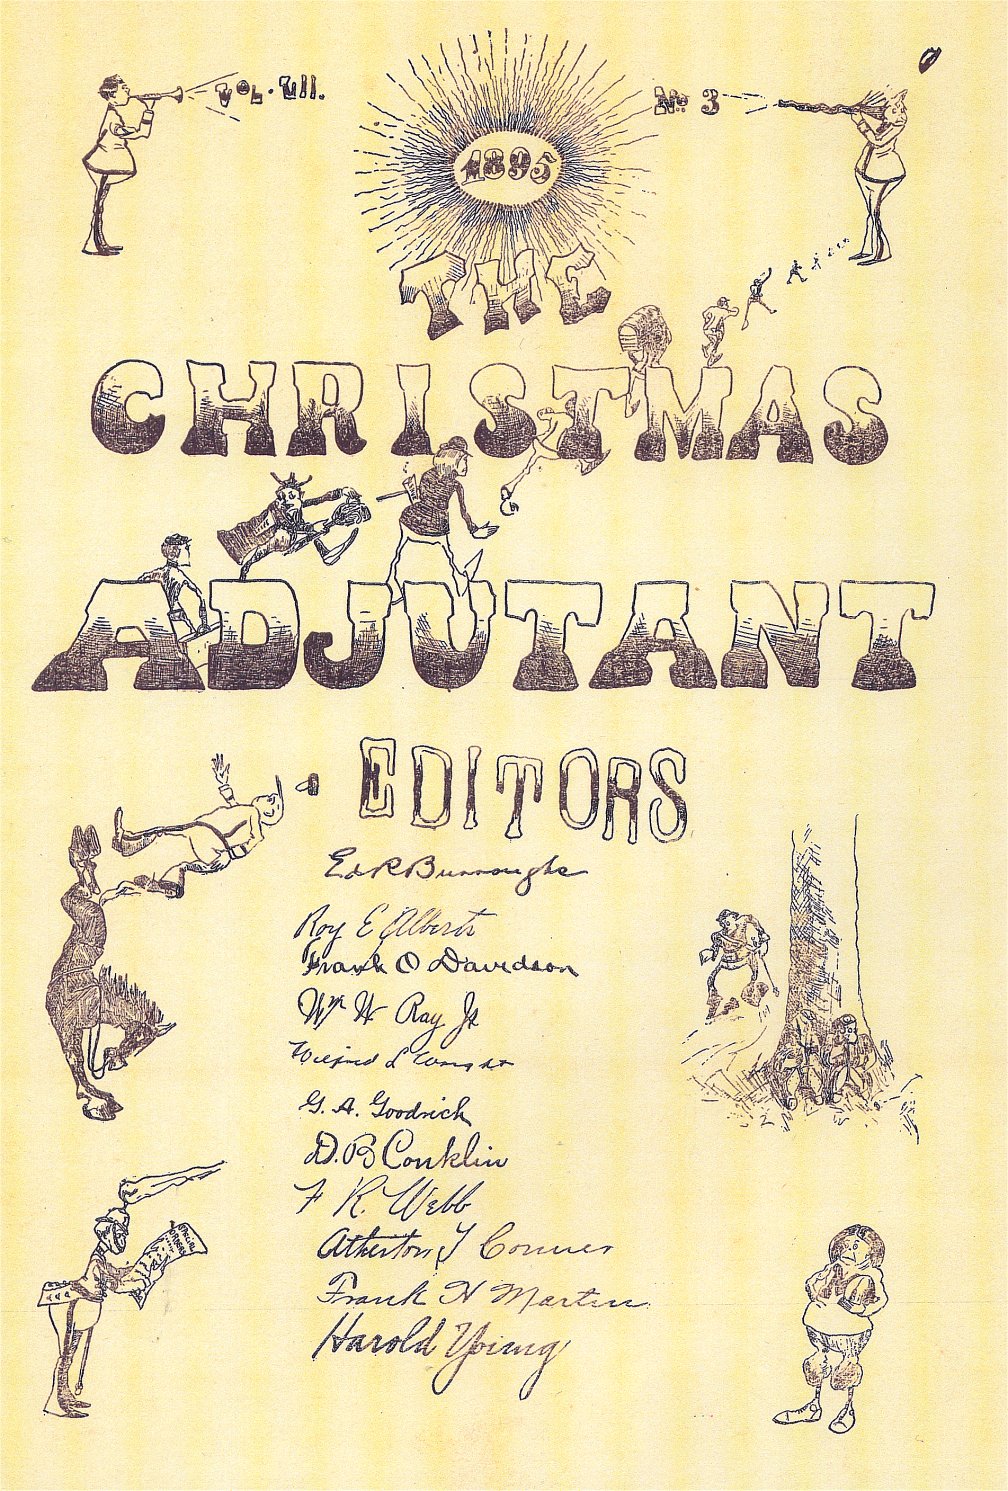 VOL. VII.
No 3
1895
THE
CHRISTMAS
ADJUTANT
EDITORS
Ed R Burroughs
Roy E Alberts
Frank O Davidson
Wm W Ray Jr
Wilfred L Wright
G. A. Goodrich
D. B Conklin
F R. Webb
Atherton T Conner
Frank H Martin
Harold Young